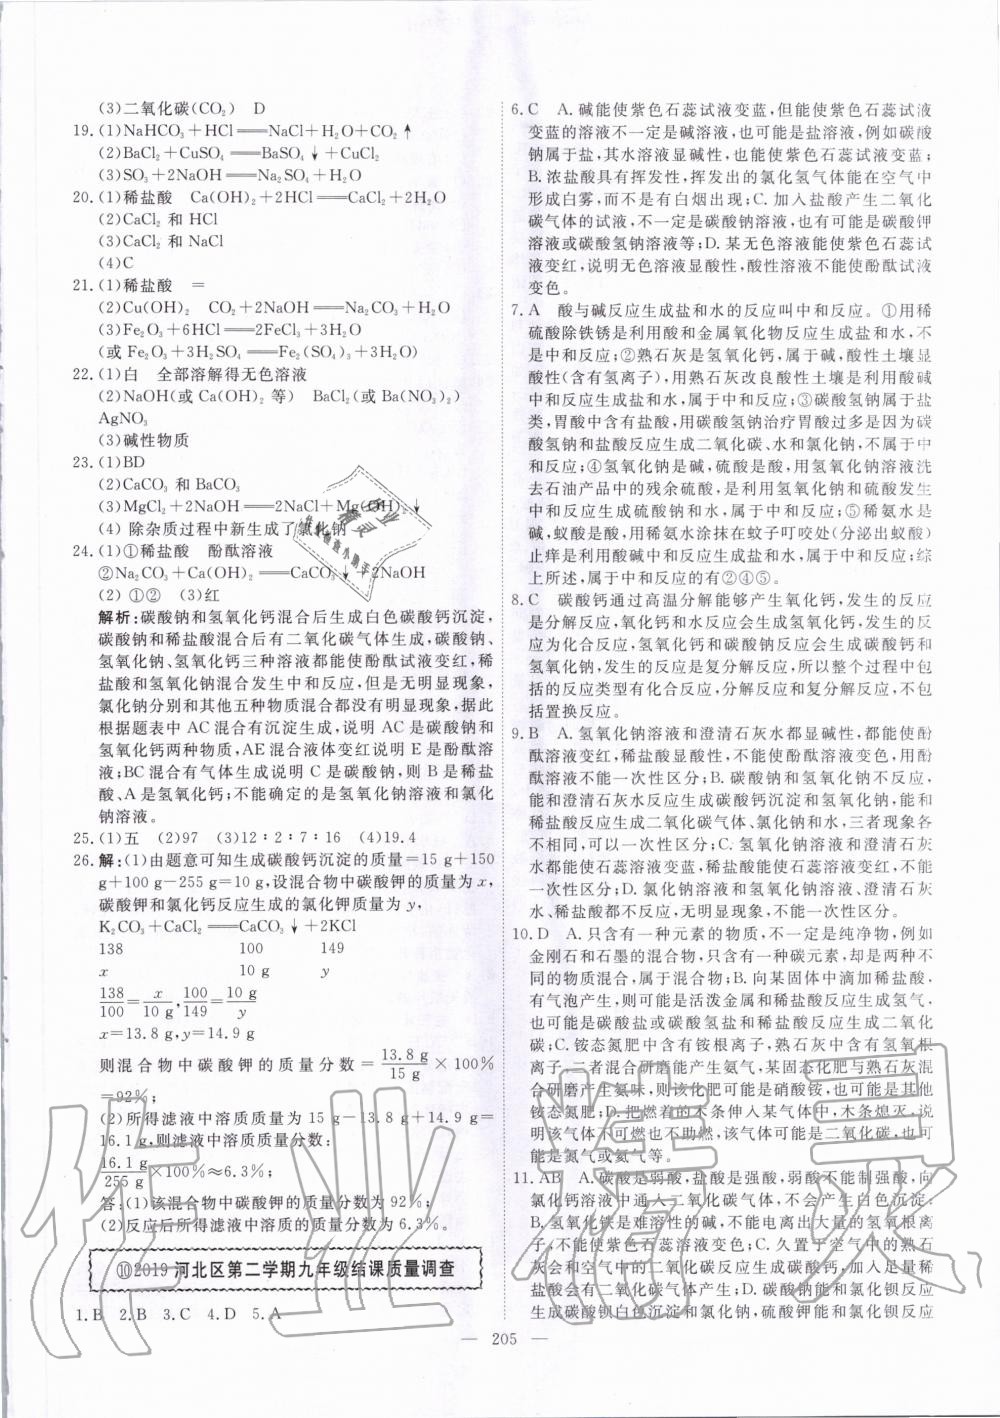 (3)二氧化碳(CO₂)　D
19.(1)NaHCO₃+HCl══NaCl+H₂O+CO₂↑
(2)BaCl₂+CuSO₄══BaSO₄↓+CuCl₂
(3)SO₃+2NaOH══Na₂SO₄+H₂O
20.(1)稀盐酸　Ca(OH)₂+2HCl══CaCl₂+2H₂O
(2)CaCl₂ 和 HCl
(3)CaCl₂ 和 NaCl
(4)C
21.(1)稀盐酸　=
(2)Cu(OH)₂　CO₂+2NaOH══Na₂CO₃+H₂O
(3)Fe₂O₃+6HCl══2FeCl₃+3H₂O
(或 Fe₂O₃+3H₂SO₄══Fe₂(SO₄)₃+3H₂O)
22.(1)白　全部溶解得无色溶液
(2)NaOH(或 Ca(OH)₂ 等)　BaCl₂(或 Ba(NO₃)₂)
AgNO₃
(3)碱性物质
23.(1)BD
(2)CaCO₃ 和 BaCO₃
(3)MgCl₂+2NaOH══2NaCl+Mg(OH)₂↓
(4) 除杂质过程中新生成了氯化钠
24.(1)①稀盐酸　酚酞溶液
②Na₂CO₃+Ca(OH)₂══CaCO₃↓+2NaOH
(2) ①②　(3)红
解析:碳酸钠和氢氧化钙混合后生成白色碳酸钙沉淀,
碳酸钠和稀盐酸混合后有二氧化碳气体生成,碳酸钠、
氢氧化钠、氢氧化钙三种溶液都能使酚酞试液变红,稀
盐酸和氢氧化钠混合发生中和反应,但是无明显现象,
氯化钠分别和其他五种物质混合都没有明显现象,据此
根据题表中 AC 混合有沉淀生成,说明 AC 是碳酸钠和
氢氧化钙两种物质,AE 混合液体变红说明 E 是酚酞溶
液;BC 混合有气体生成说明 C 是碳酸钠,则 B 是稀盐
酸、A 是氢氧化钙;不能确定的是氢氧化钠溶液和氯化
钠溶液。
25.(1)五　(2)97　(3)12∶2∶7∶16　(4)19.4
26.解:(1)由题意可知生成碳酸钙沉淀的质量=15 g+150
g+100 g-255 g=10 g,设混合物中碳酸钾的质量为 x,
碳酸钾和氯化钙反应生成的氯化钾质量为 y,
K₂CO₃+CaCl₂══CaCO₃↓+2KCl
138　100　149
x　10 g　y
138/100=x/10 g,100/149=10 g/y
x=13.8 g,y=14.9 g
则混合物中碳酸钾的质量分数=13.8 g/15 g×100%
=92%;
(2)所得滤液中溶质质量为 15 g-13.8 g+14.9 g=
16.1 g,则滤液中溶质质量分数:
16.1 g/255 g×100%≈6.3%;
答:(1)该混合物中碳酸钾的质量分数为 92%;
(2)反应后所得滤液中溶质的质量分数为 6.3%。
⑩2019 河北区第二学期九年级结课质量调查
1.B　2.B　3.C　4.D　5.A
6.C　A.碱能使紫色石蕊试液变蓝,但能使紫色石蕊试液
变蓝的溶液不一定是碱溶液,也可能是盐溶液,例如碳酸
钠属于盐,其水溶液显碱性,也能使紫色石蕊试液变蓝;
B.浓盐酸具有挥发性,挥发出的氯化氢气体能在空气中
形成白雾,而不是有白烟出现;C.加入盐酸产生二氧化
碳气体的试液,不一定是碳酸钠溶液,也有可能是碳酸钾
溶液或碳酸氢钠溶液等;D.某无色溶液能使紫色石蕊试
液变红,说明无色溶液显酸性,酸性溶液不能使酚酞试液
变色。
7.A　酸与碱反应生成盐和水的反应叫中和反应。①用稀
硫酸除铁锈是利用酸和金属氧化物反应生成盐和水,不
是中和反应;②熟石灰是氢氧化钙,属于碱,酸性土壤显
酸性(含有氢离子),用熟石灰改良酸性土壤是利用酸和
碱中和反应生成盐和水,属于中和反应;③碳酸氢钠属于盐
类,胃酸中含有盐酸,用碳酸氢钠治疗胃酸过多是因为碳
酸氢钠和盐酸反应生成二氧化碳、水和氯化钠,不属于中
和反应;④氢氧化钠是碱,硫酸是酸,用氢氧化钠溶液洗
去石油产品中的残余硫酸,是利用氢氧化钠和硫酸发生
中和反应生成硫酸钠和水,属于中和反应;⑤稀氨水是
碱,蚁酸是酸,用稀氨水涂抹在蚊子叮咬处(分泌出蚁酸)
止痒是利用酸碱中和反应生成盐和水,属于中和反应;综
上所述,属于中和反应的有②④⑤。
8.C　碳酸钙通过高温分解能够产生氧化钙,发生的反应
是分解反应,氧化钙和水反应会生成氢氧化钙,发生的反
应为化合反应,氢氧化钙和碳酸钠反应会生成碳酸钙和
氢氧化钠,发生的反应是复分解反应,所以整个过程中包
括的反应类型有化合反应,分解反应和复分解反应,不包
括置换反应。
9.B　A.氢氧化钠溶液和澄清石灰水都显碱性,都能使酚
酞溶液变红,稀盐酸显酸性,不能使酚酞溶液变色,用酚
酞溶液不能一次性区分;B.碳酸钠和氢氧化钠不反应,
能和澄清石灰水反应生成碳酸钙沉淀和氢氧化钠,能和
稀盐酸反应生成二氧化碳气体、氯化钠和水,三者现象各
不相同,可以一次性区分;C.氢氧化钠溶液和澄清石灰
水都能使石蕊溶液变蓝,稀盐酸能使石蕊溶液变红,不能
一次性区分;D.氯化钠溶液和氢氧化钠溶液、澄清石灰
水、稀盐酸都不反应,无明显现象,不能一次性区分。
10.D　A.只含有一种元素的物质,不一定是纯净物,例如
金刚石和石墨的混合物,只含有一种碳元素,却是两种不
同的物质混合,属于混合物;B.向某固体中滴加稀盐酸,
有气泡产生,则可能是活泼金属和稀盐酸反应生成氢气,
也可能是碳酸盐或碳酸氢盐和稀盐酸反应生成二氧化
碳;C.铵态氮肥中含有铵根离子,熟石灰中含有氢氧根
离子,二者混合研磨能产生氨气,某固态化肥与熟石灰混
合研磨产生氨味,则该化肥可能是硝酸铵,也可能是其他
铵态氮肥;D.把燃着的木条伸入某气体中,木条熄灭,说
明该气体不可燃也不助燃,该气体可能是二氧化碳,也可
能是氮气或氦气等。
11.AB　A.碳酸是弱酸,盐酸是强酸,弱酸不能制强酸,向
氯化钙溶液中通入二氧化碳气体,不会产生白色沉淀;
B.氢氧化铁是难溶性的碱,不能电离出大量的氢氧根离
子,不能使酚酞溶液变红;C.久置于空气中的大
变质会生成碳酸钠,加入足量稀盐
会有二氧化碳气体产生;D.碳酸钠能和氯化钡反应
生成碳酸钡白色沉淀和氯化钠,硫酸钾能和氯化钡反应
— 205 —
作业精灵